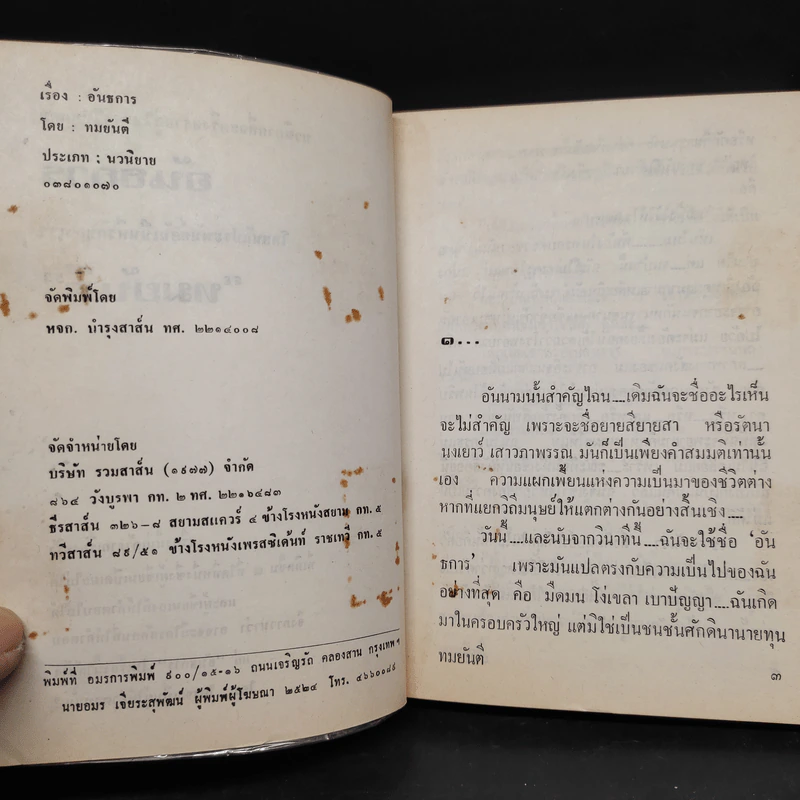 เรื่อง : อันธการ
โดย : ทมยันตี
ประเภท : นวนิยาย
๐๓๘๐๑๐๗๐
จัดพิมพ์โดย
หจก. บำรุงสาส์น ทศ. ๒๒๑๔๐๐๘
จัดจำหน่ายโดย
บริษัท รวมสาส์น (๑๙๗๗) จำกัด
๘๖๔ วังบูรพา กท. ๒ ทศ. ๒๒๑๖๔๘๓
ธีรสาส์น ๓๒๖-๘ สยามสแควร์ ๔ ข้างโรงหนังสยาม กท. ๕
ทวีสาส์น ๘๙/๕๑ ข้างโรงหนังเพรสซิเด้นท์ ราชเทวี กท. ๕
พิมพ์ที่ อมรการพิมพ์ ๙๐๐/๑๕-๑๖ ถนนเจริญรัถ คลองสาน กรุงเทพ ฯ
นายอมร เจียระสุพัฒน์ ผู้พิมพ์ผู้โฆษณา ๒๕๒๔ โทร. ๔๖๖๐๐๘๙
๑...
อันนามนั้นสำคัญไฉน....เดิมฉันจะชื่ออะไรเห็น
จะไม่สำคัญ เพราะจะชื่อยายสียายสา หรือรัตนา
นงเยาว์ เสาวภาพรรณ มันก็เป็นเพียงคำสมมติเท่านั้น
เอง ความแผกเพี้ยนแห่งความเป็นมาของชีวิตต่าง
หากที่แยกวิถีมนุษย์ให้แตกต่างกันอย่างสิ้นเชิง....
วันนี้....และนับจากวินาทีนี้....ฉันจะใช้ชื่อ 'อัน
ธการ' เพราะมันแปลตรงกับความเป็นไปของฉัน
อย่างที่สุด คือ มืดมน โง่เขลา เบาปัญญา....ฉันเกิด
มาในครอบครัวใหญ่ แต่มิใช่เป็นชนชั้นศักดินานายทุน
ทมยันตี
๓